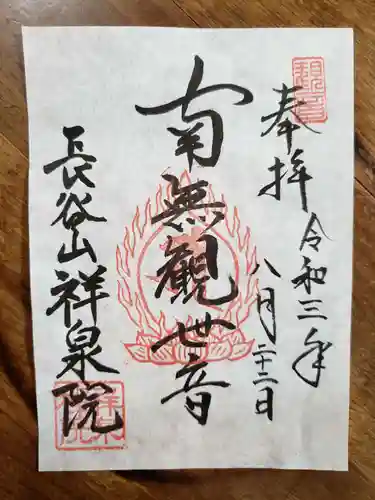 奉拝
令和三年
八月二十二日
南無觀世音
長谷山祥泉院